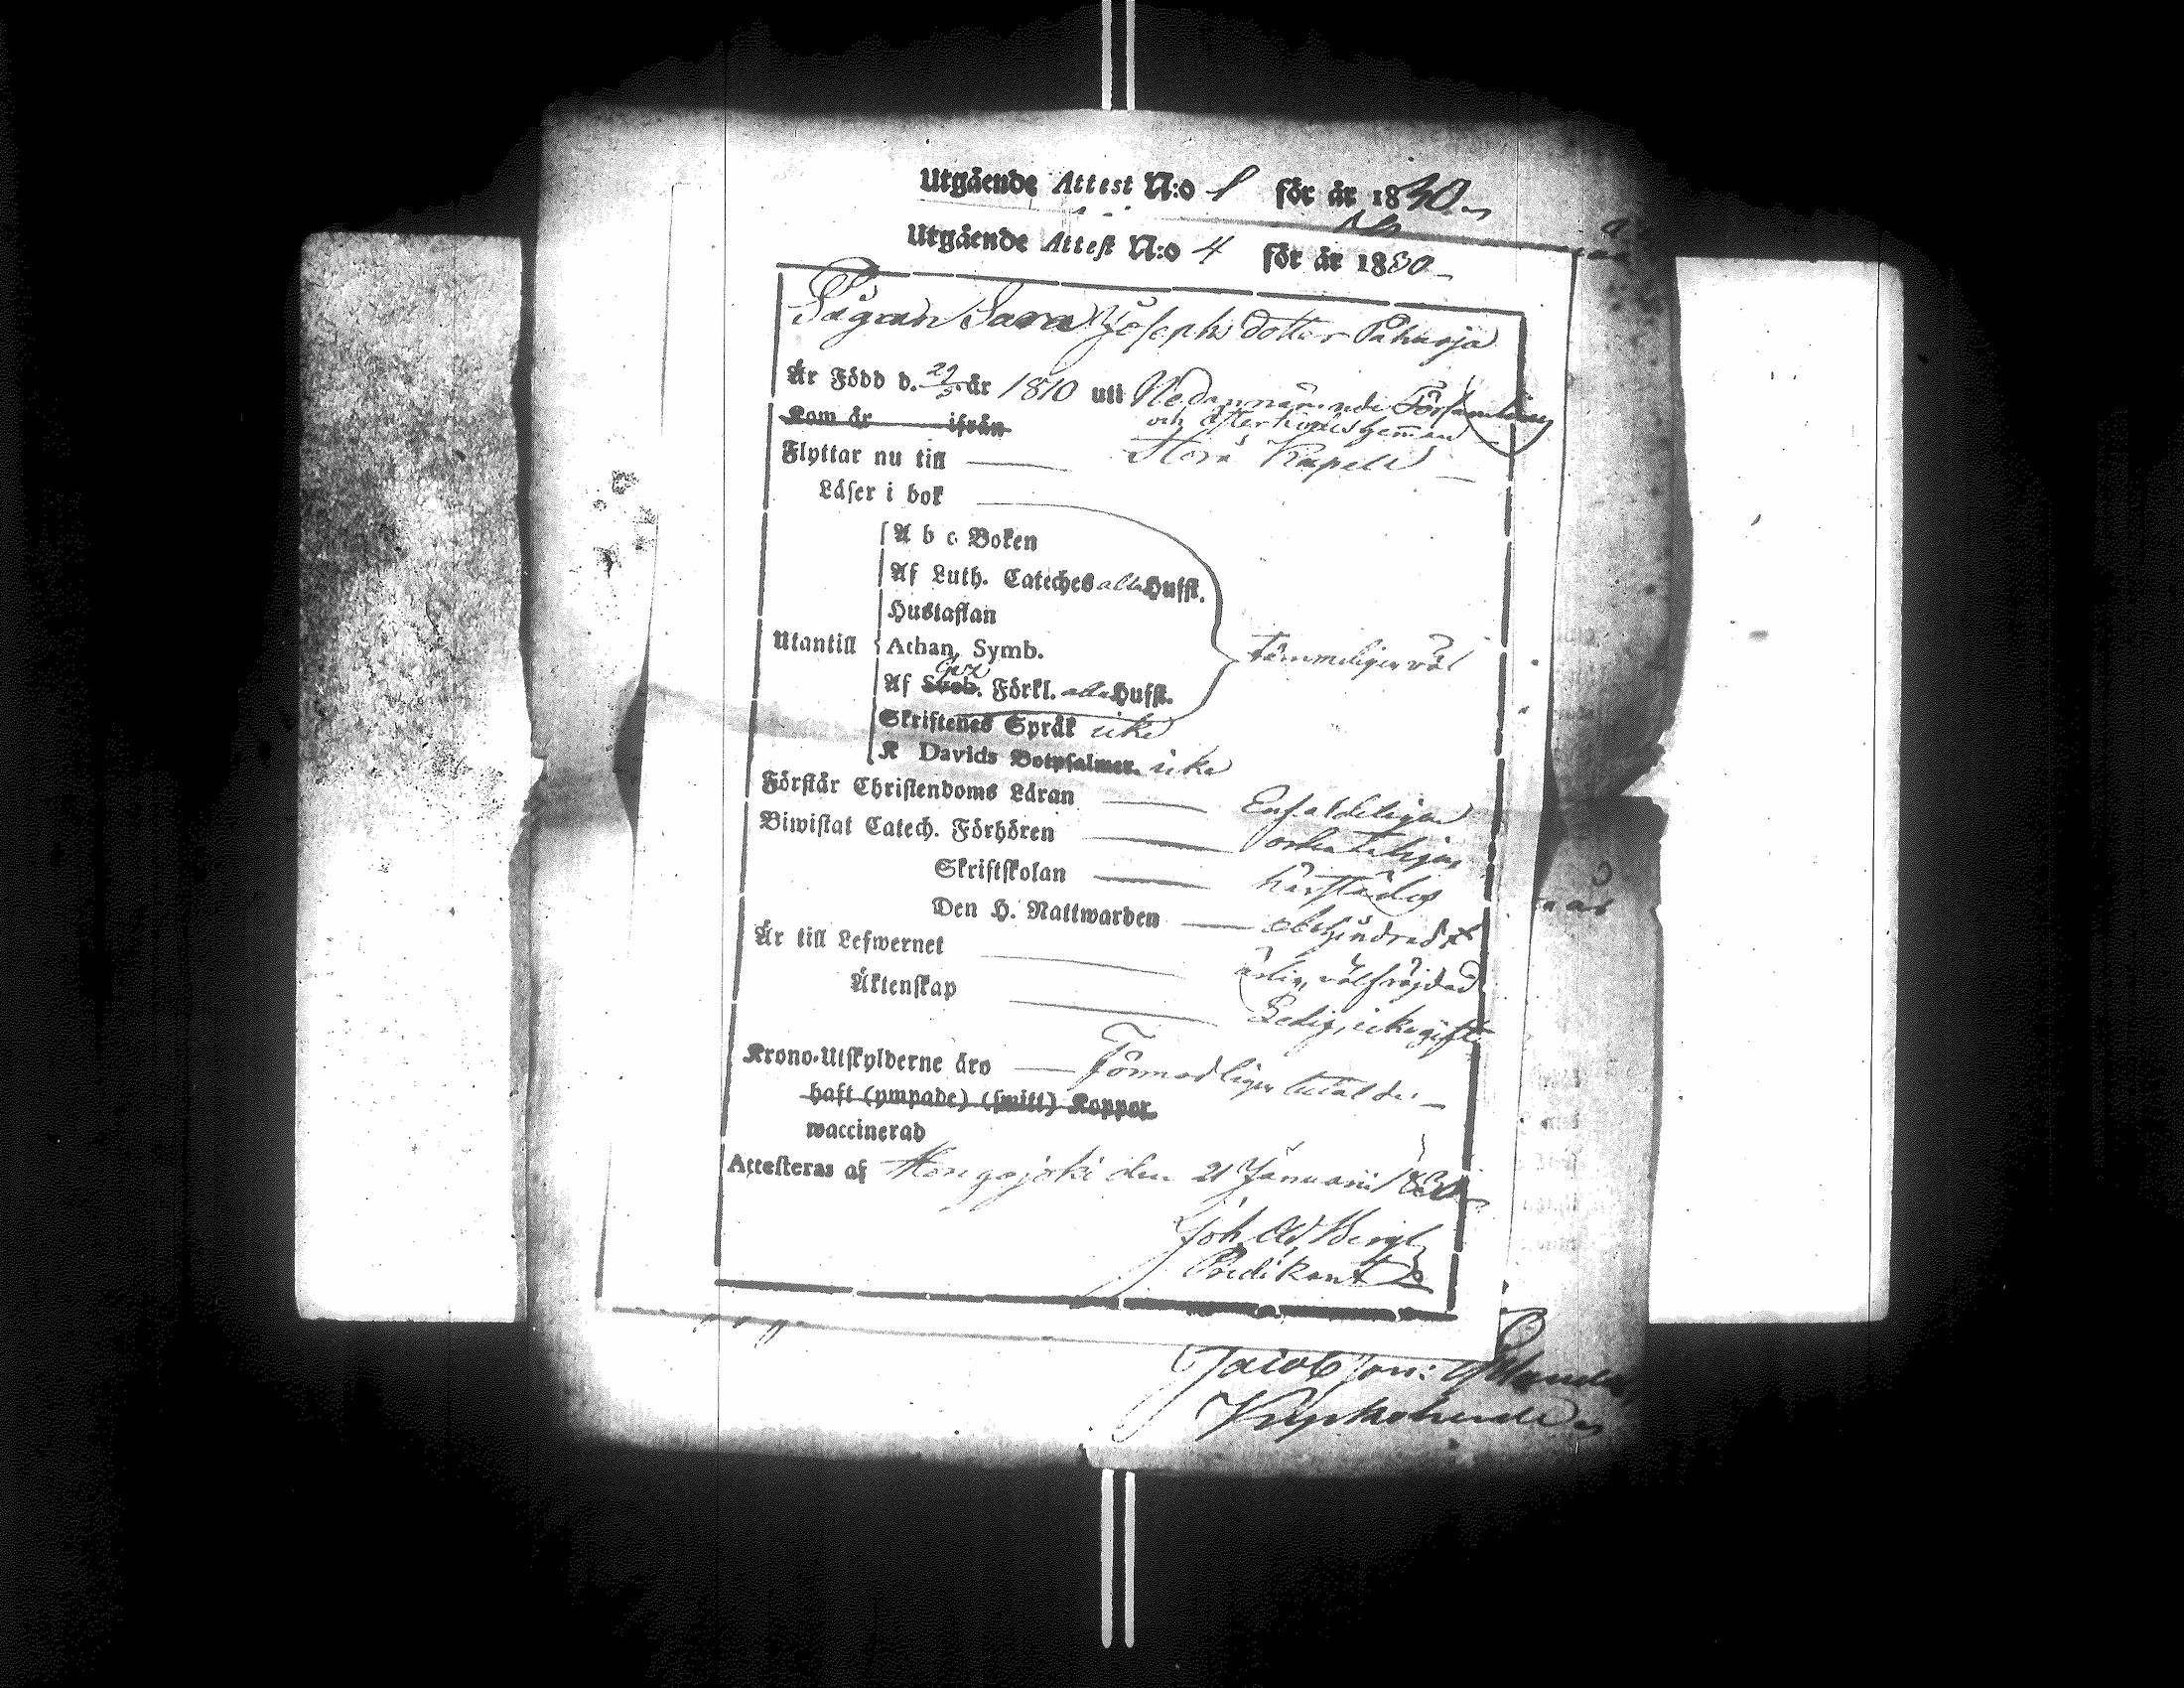 Utgående Attest N:o 1 för år 1830
Utgående Attest N:o 4 för år 1830
Pigan Sara Josephs dotter Pahaoja
Är Född d. 29/3 år 1810 uti Nedannämnde Församling
och åfter
Kom år ifrån
Flyttar nu till Kapell
Läser i bok
A b c Boken
Af Luth. Cateches alla Hufst.
Hustaflan
Utantill Athan. Symb. tämmeligen väl
Af Sveb. Förkl. alla Hufst.
Skriftenes Språk icke
K Davids Botpsalmer. icke
Förstår Christendoms Läran Enfaldeligen
Biwistat Catech. Förhören
Skriftskolan härstädes
Den H. Nattwarden obehindradt
Är till Lefwernet ärlig, välfräjdad
Äktenskap Ledig, icke gift
Krono-Utskylderne äro Förmodligen betalde
haft (ympade) (smitt) Koppor
waccinerad
Attesteras af den 21 Januarii 1830
Joh. Ad. Bergh
Predikant
Jacob Joh:
Kyrkoherde